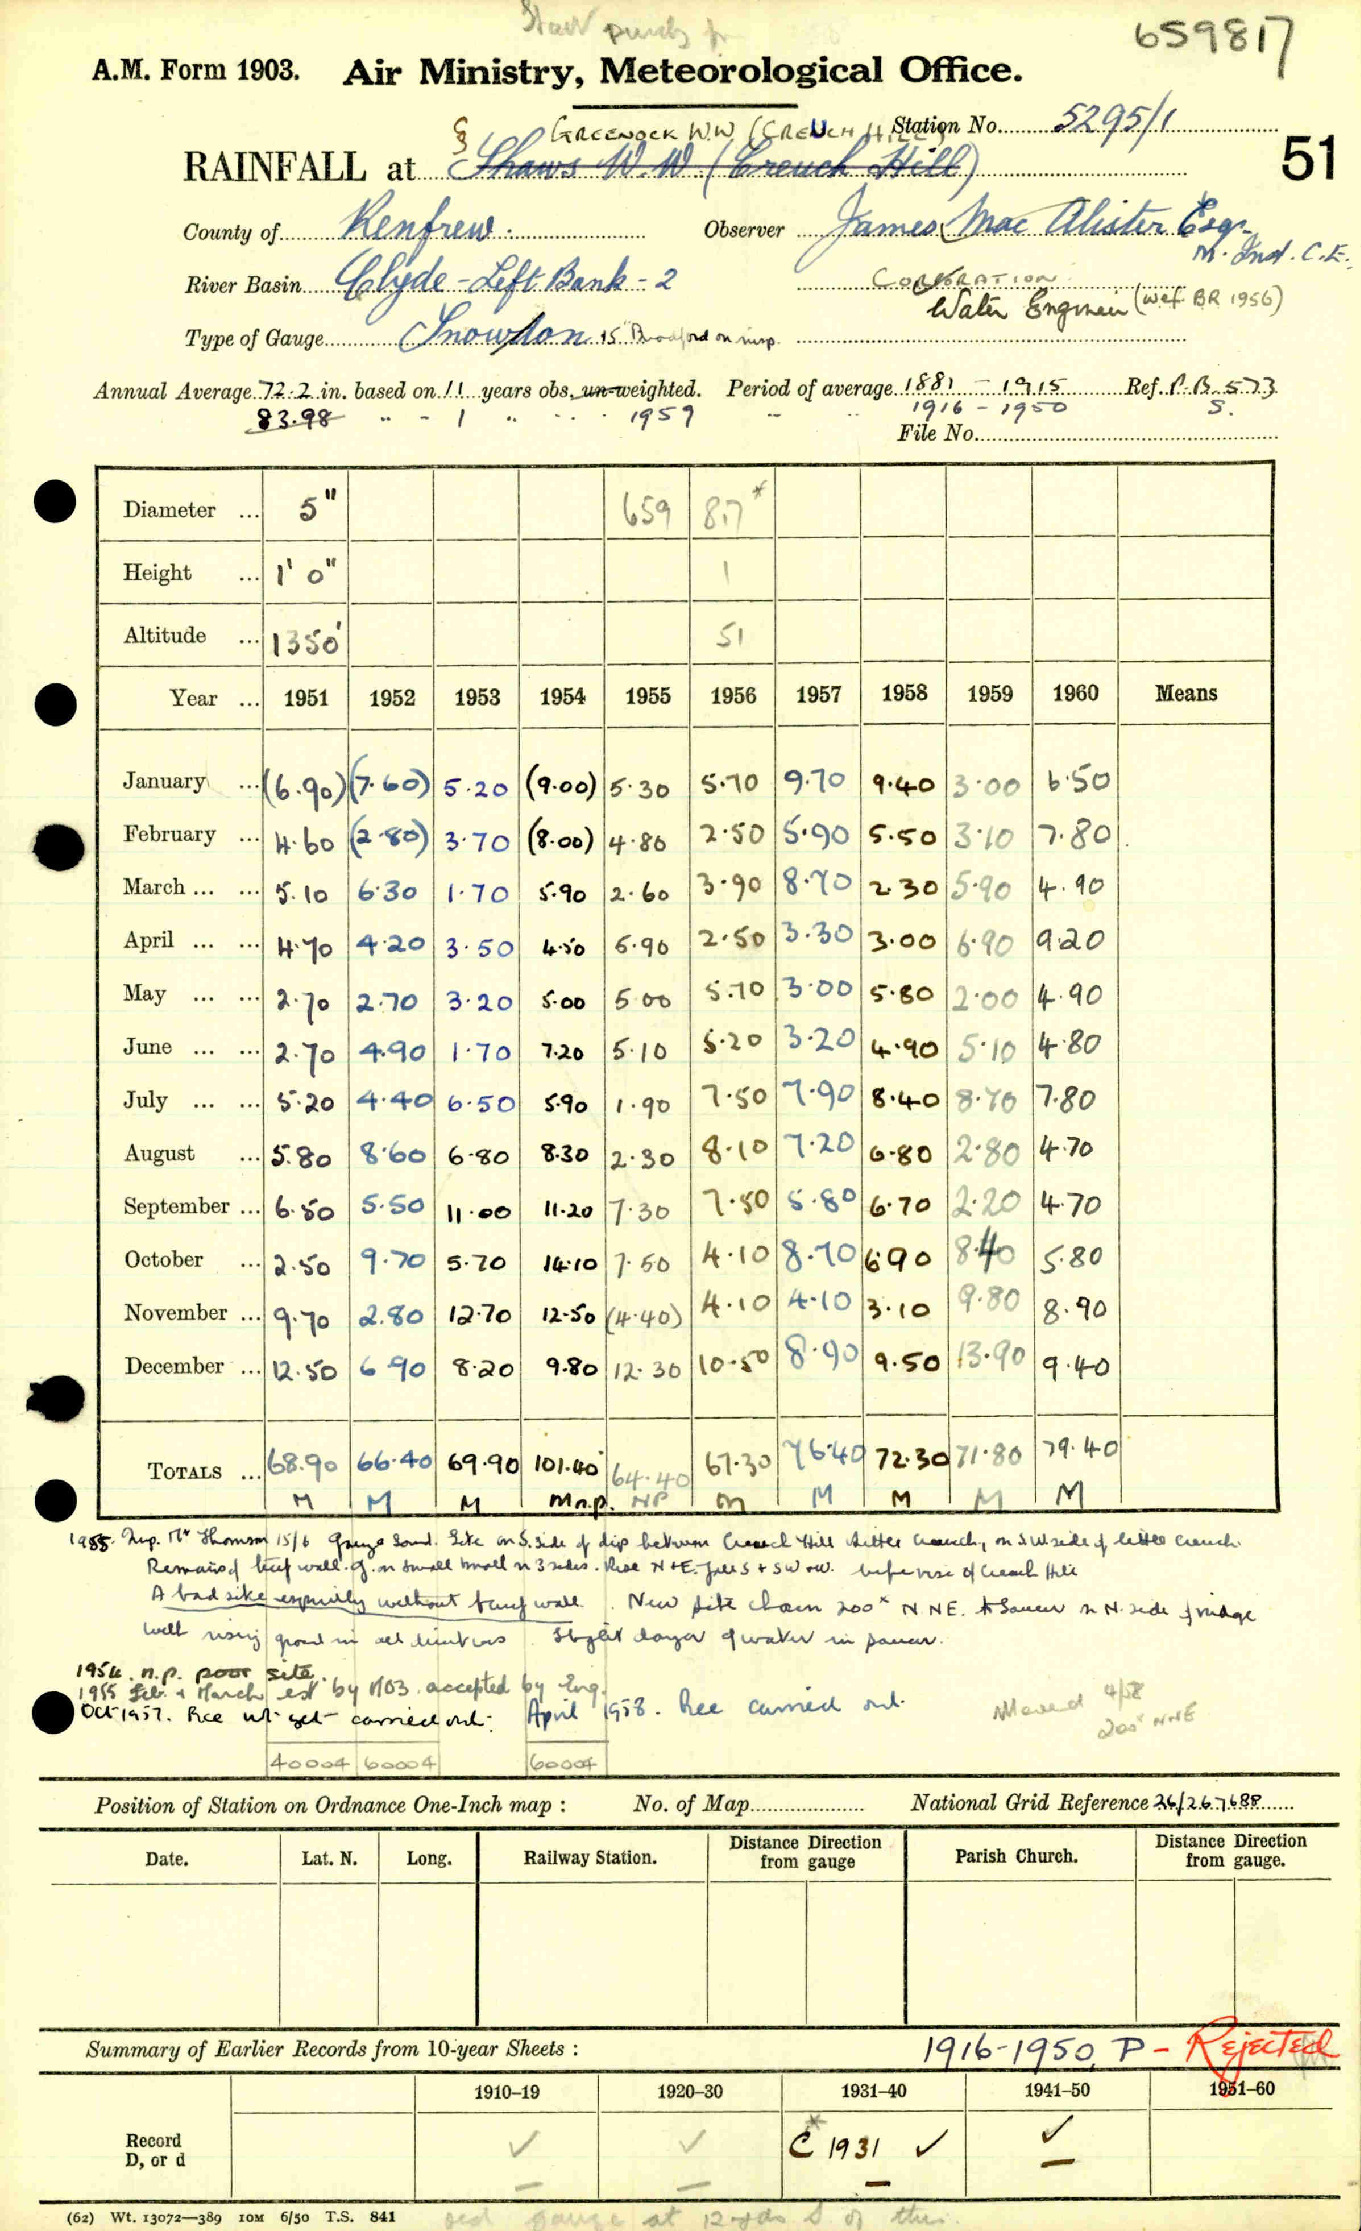 659817
A.M. Form 1903. Air Ministry, Meteorological Office.
GREENOCK W.W (CREUCH HILL) Station No. 5295/1
RAINFALL at Shaws W.W. (Creuch Hill) 51
County of Renfrew. Observer James Mac Alister Esqr. M. Inst. C.E.
River Basin Clyde - Left Bank - 2 CORPORATION
Water Engineer (wef BR 1956)
Type of Gauge Snowdon 15" Bradford on insp.
Annual Average 72.2 in. based on 11 years obs. un-weighted. Period of average 1881 - 1915 Ref. P.B. 573
83.98 " - 1 " 1959 1916 - 1950 S.
File No.
Diameter ... 5" 659 817*
Height ... 1' 0" 1
Altitude ... 1350' 51
Year ... 1951 1952 1953 1954 1955 1956 1957 1958 1959 1960 Means
January ... (6.90) (7.60) 5.20 (9.00) 5.30 5.70 9.70 9.40 3.00 6.50
February ... 4.60 (2.80) 3.70 (8.00) 4.80 2.50 5.90 5.50 3.10 7.80
March ... ... 5.10 6.30 1.70 5.90 2.60 3.90 8.70 2.30 5.90 4.90
April ... ... 4.70 4.20 3.50 4.50 5.90 2.50 3.30 3.00 6.90 9.20
May ... ... 2.70 2.70 3.20 5.00 5.00 5.70 3.00 5.80 2.00 4.90
June ... ... 2.70 4.90 1.70 7.20 5.10 5.20 3.20 4.90 5.10 4.80
July ... ... 5.20 4.40 6.50 5.90 1.90 7.50 7.90 8.40 8.70 7.80
August ... 5.80 8.60 6.80 8.30 2.30 8.10 7.20 6.80 2.80 4.70
September ... 6.50 5.50 11.00 11.20 7.30 7.50 5.80 6.70 2.20 4.70
October ... 2.50 9.70 5.70 14.10 7.50 4.10 8.70 6.90 8.40 5.80
November ... 9.70 2.80 12.70 12.50 (4.40) 4.10 4.10 3.10 9.80 8.90
December ... 12.50 6.90 8.20 9.80 12.30 10.50 8.90 9.50 13.90 9.40
TOTALS ... 68.90 66.40 69.90 101.40 64.40 67.30 76.40 72.30 71.80 79.40
M M M M n.p. NP M M M M M
1955. Insp. Mr Thomson 15/6 Gauge sound. Site on S. side of dip between Creuch Hill & little Creuch, on SW side of little Creuch
Remains of turf wall. G. in small knoll on 3 sides. Rise N + E. falls S + SW
A bad site especially without turf wall. New site chosen 200x N NE. in N. side of ridge
with rising ground in all directions. Slight danger of water in
1954. n.p. poor site.
1955 Feb. & March est by MO3. accepted by Eng.
Oct 1957. Rec not yet carried out. April 1958. Rec carried out. Moved 4/58
200x NNE
40004 60004 60004
Position of Station on Ordnance One-Inch map : No. of Map National Grid Reference 26/267688
Date. Lat. N. Long. Railway Station. Distance Direction from gauge Parish Church. Distance Direction from gauge.
Summary of Earlier Records from 10-year Sheets : 1916-1950 P - Rejected
1910–19 1920–30 1931–40 1941–50 1951–60
Record D, or d ✓ ✓ C* 1931 ✓ ✓
(62) Wt. 13072—389 10M 6/50 T.S. 841
old gauge at 12 yds S of this.